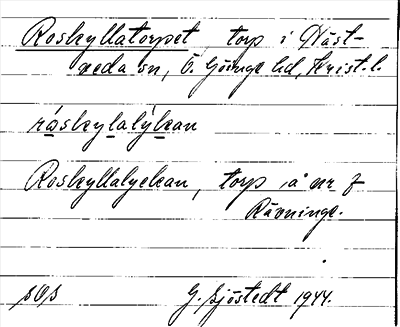 Roskyllatorpet torp i Näst-
veda sn, Ö. Göinge hd, Krist. l.
råskylalýkan
Roskyllalyckan, torp å nr 7
Rävninge.
sOs G. Sjöstedt 1944.